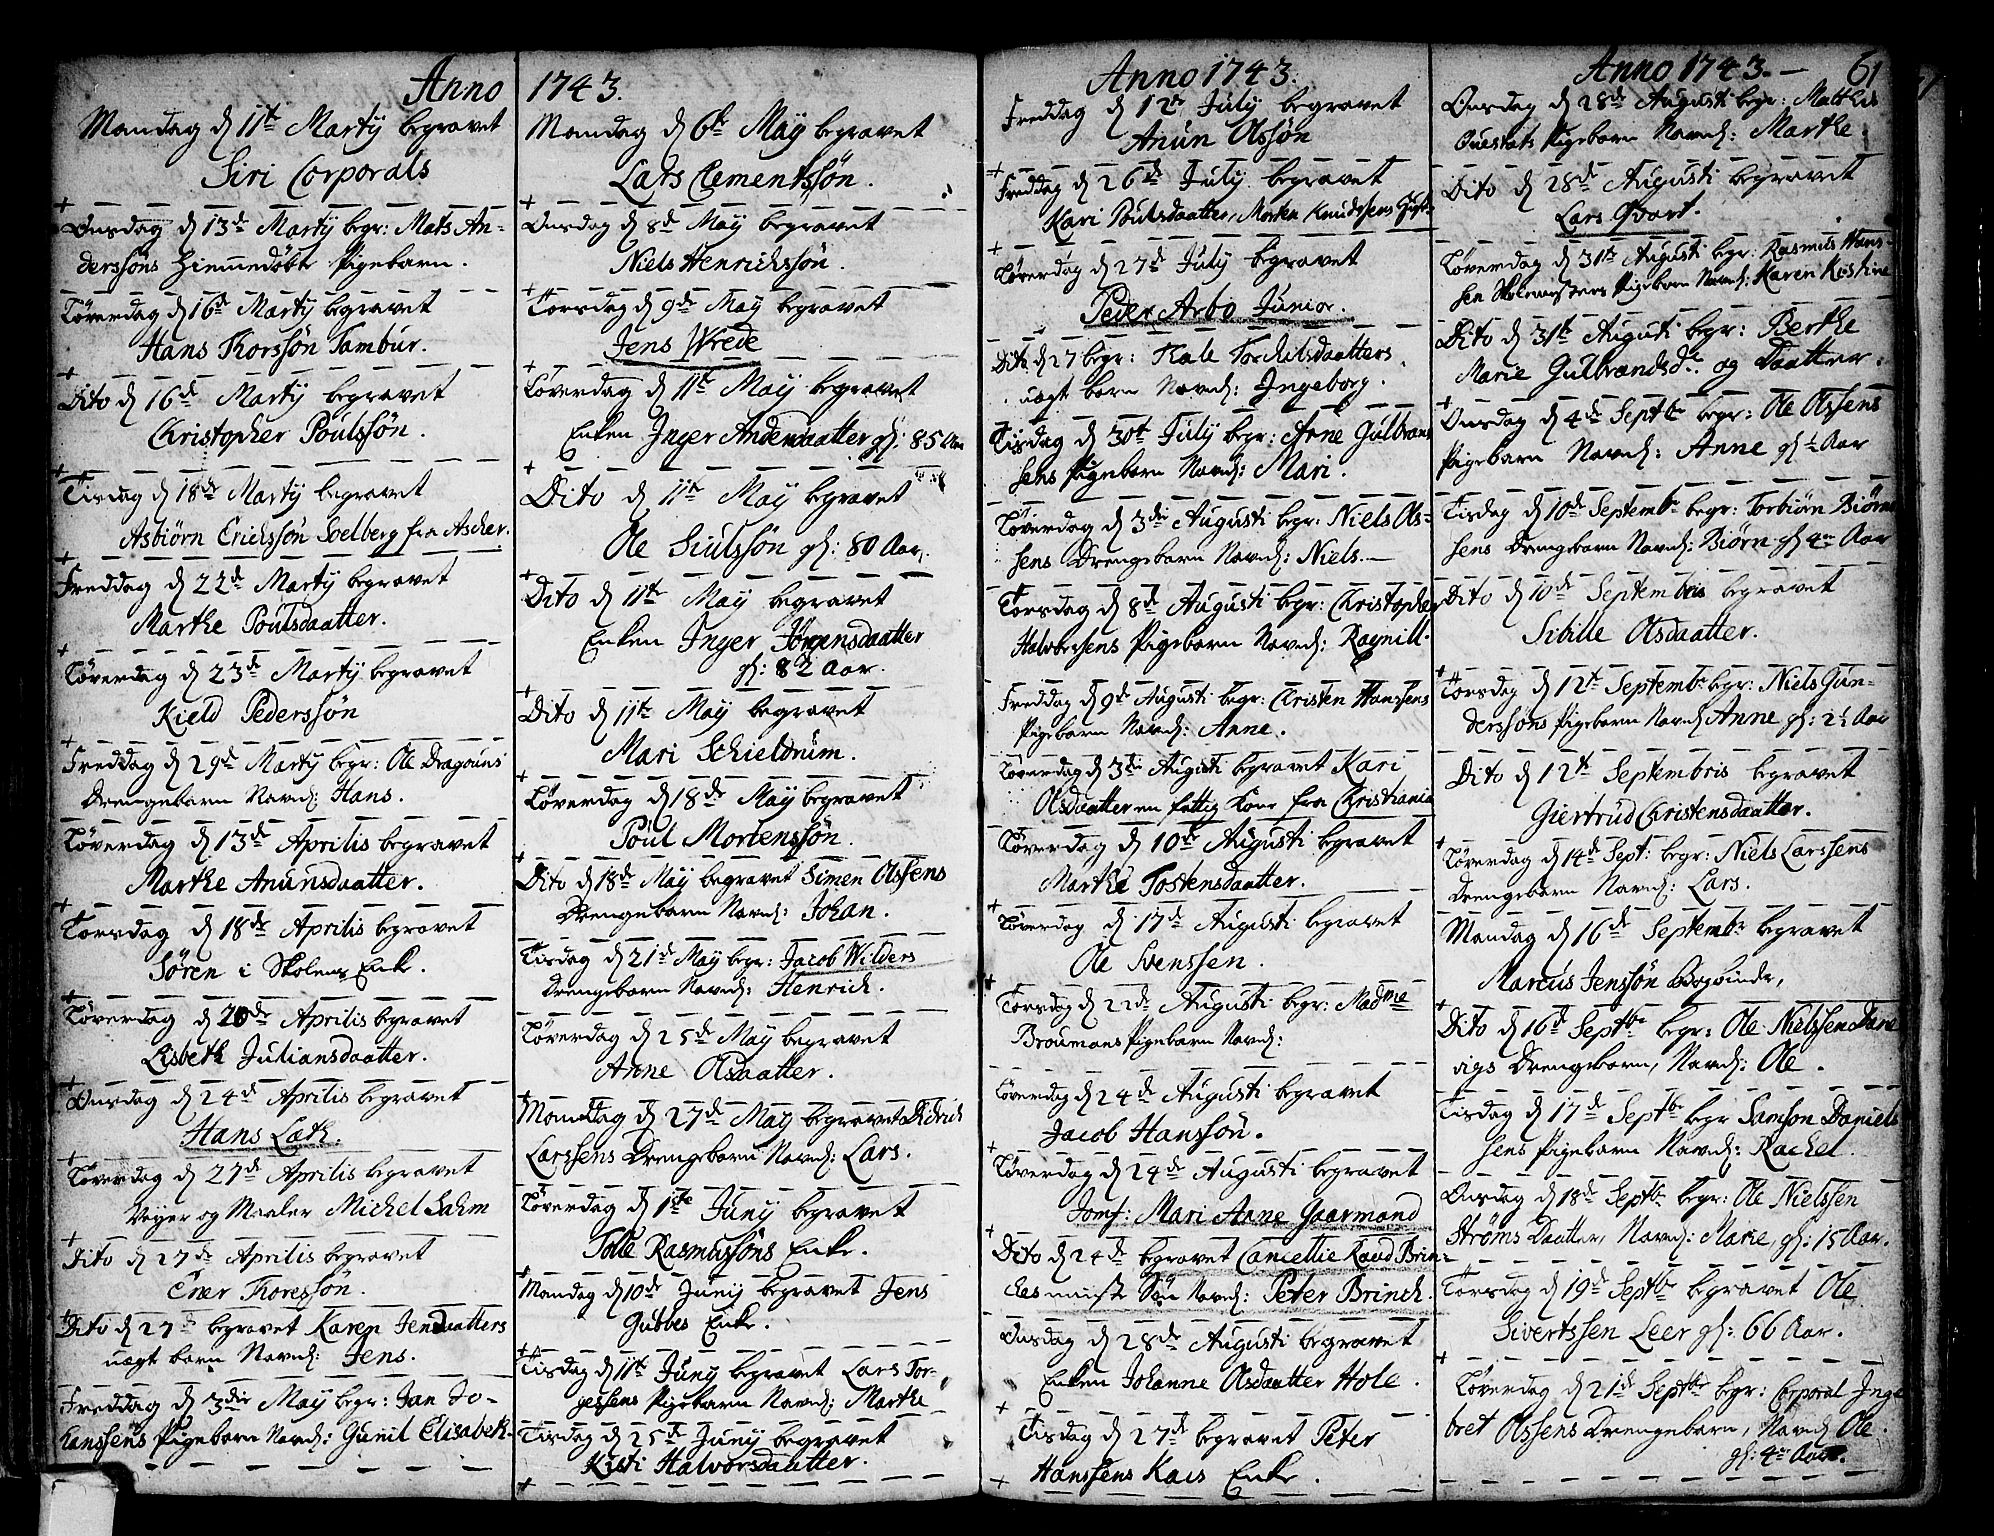 Anno
Mandag d 11te Marty begravet
Siri Corporals
Onsdag d 13de Marty begr: Mats An-
derssöns Hiemmedøbte Pigebarn.
Løverdag d 16de Marty begravet
Hans Thorssön Tambur.
Dito d 16de Marty begravet
Christopher Poulssön.
Tisdag d 18de Marty begravet
Asbiørn Erichssön Soelberg fra Ascher.
Freddag d 22de Marty begravet
Marthe Poulsdaatter.
Løverdag d 23de Marty begravet
Kield Pederssön
Freddag d 29de Marty begr: Ole Dragouns
Drengebarn Navnd: Hans.
Løverdag d 13de Aprilis begravet
Marthe Anunsdaatter.
Torsdag d 18de Aprilis begravet
Sören i Skolens Enke.
Løverdag d 20de Aprilis begravet
Lisbeth Juliansdaatter.
Onsdag d 24de Aprilis begravet
Hans Læth.
Løverdag d 27de Aprilis begravet
Veyer og Maaler Michel Sahm
Dito d 27de Aprilis begravet
Ener Thoressön.
Dito d 27de begravet Karen Jensdaatters
uægt barn Navnd: Jens.
Freddag d 3die May begr: Jan Jo-
hanssens Pigebarn Navnd: Gunil Elisabeth.
1743.
Mandag d 6te May begravet
Lars Clementssön.
Onsdag d 8de May begravet
Niels Henrichssön.
Torsdag d 9de May begravet
Jens Wrede
Løverdag d 11te May begravet
Enken Inger Andersdaatter gl: 85 Aar
Dito d 11te May begravet
Ole Siulssön gl: 80 Aar.
Dito d 11te May begravet
Enken Inger Jörgensdaatter
gl: 82 Aar.
Dito d 11te May begravet
Mari Schieldrum.
Løverdag d 18de May begravet
Poul Mortenssön.
Dito d 18de May begravet Simen Olssens
Drengebarn Navnd: Johan.
Tisdag d 21de May begr: Jacob Wilders
Drengebarn Navnd: Henrich.
Løverdag d 25de May begravet
Anne Olsdaatter.
Mandag d 27de May begravet Didrich
Larssens Drengebarn Navnd: Lars.
Løverdag d 1ste Juny begravet
Tolle Rasmussöns Enke.
Mandag d 10de Juny begravet Jens
Gubbes Enke.
Tisdag d 11te Juny begravet Lars Tor-
gessens Pigebarn Navnd: Marthe
Tisdag d 25de Juny begravet
Kisti Halvorsdaatter.
Anno 1743.
Freddag d 12te July begravet
Anun Olssön
Freddag d 26de July begravet
Kari Poulsdaatter, Morten Knudssens
Løverdag d 27de July begravet
Peder Arbo Junior.
Dito d 27 begr: Kale Torchilsdaatters
uægt barn Navnd: Ingeborg.
Tisdag d 30te July begr: Arne Gulbran
sens Pigebarn Navnd: Mari.
Løverdag d 3die Augusti begr: Niels Ols-
sens Drengebarn Navnd: Niels.
Torsdag d 8de Augusti begr: Christopher
Halvorsens Pigebarn Navnd: Ragnill.
Freddag d 9de Augusti begr: Christen Hanssens
Pigebarn Navnd: Anne.
Løverdag d 3die Augusti begravet Kari
Olsdaatter en fattig Kone fra Christiania
Løverdag d 10de Augusti begravet
Marthe Tostensdaatter.
Løverdag d 17de Augusti begravet
Ole Svenssen.
Torsdag d 22de Augusti begr: Madme
Broumans Pigebarn Navnd:
Løverdag d 24de Augusti begravet
Jacob Hanssön.
Løverdag d 24de Augusti begravet
Jomf: Mari Anne Gaarmand
Dito d 24de begravet Cancellie Raad Brin-
ches Søn Navnd: Peter Brinch.
Onsdag d 28de Augusti begravet
Enken Johanne Olsdaatter Hole.
Tisdag d 27de begravet Peter
Hanssens Kaes Enke.
Anno 1743. 61
Onsdag d 28de Augusti begr: Matthis
Ouestats Pigebarn Navnd: Marthe.
Dito d 28de Augusti begravet
Lars Qvart.
Løverdag d 31te Augusti begr: Rasmus Hans-
sen Skolemesters Pigebarn Navnd: Karen Kistine
Dito d 31te Augusti begr: Berthe
Marie Gulbrandsdr og Daatter.
Onsdag d 4de Septbr begr: Ole Olssens
Pigebarn Navnd: Anne gl ½ Aar
Tisdag d 10de Septembr begr: Torbiørn Biørns
sens Drengebarn Navnd: Biørn gl 4re Aar
Dito d 10de Septembris begravet
Sibille Olsdaatter.
Torsdag d 12te Septembr begr: Niels Gun-
derssöns Pigebarn Navnd Anne, gl: 2½ Aar
Dito d 12te Septembris begravet
Giertrud Christensdaatter.
Løverdag d 14de Sept: begr: Niels Larssens
Drengebarn Navnd: Lars.
Mandag d 16de Septembr begravet
Marcus Jenssön Bogbinder,
Dito d 16de Septbr begr: Ole Nielssen Dane
vigs Drengebarn, Navnd: Ole.
Tisdag d 17de Septbr begr Samson Daniels
sens Pigebarn Navnd: Rachel.
Onsdag d 18de Septbr begr: Ole Nielssen
Strøms Daatter, Navnd: Marie, gl: 15 Aar.
Torsdag d 19de Septbr begravet Ole
Sivertssen Leer gl: 66 Aar.
Løverdag d 21de Septbr begr: Corporal Inge
bret Olssens Drengebarn, Navnd Ole.
gl: 4re Aar.